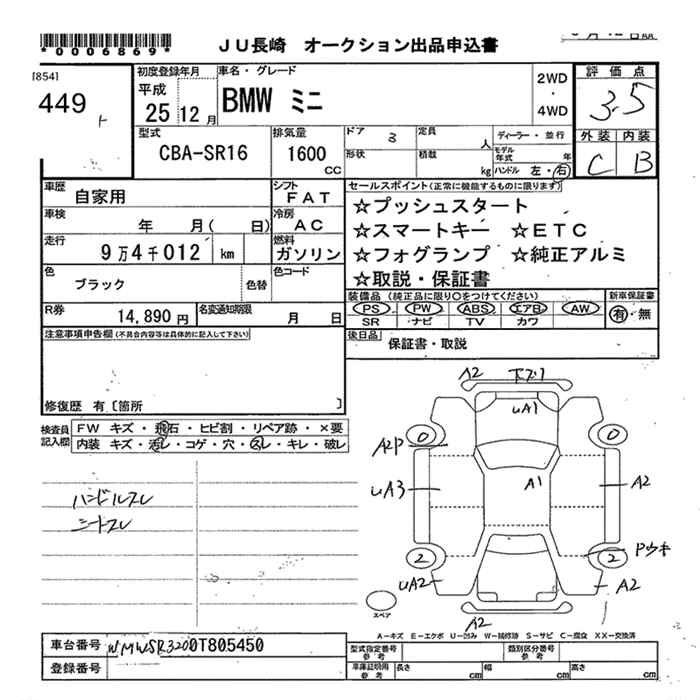 *0006869*
JU長崎 オークション出品申込書
[854]
449
初度登録年月
平成
25 12 月
車名・グレード
BMW ミニ
2WD
・
4WD
評価点
3.5
外装 内装
C B
型式
CBA-SR16
排気量
1600
CC
ドア 3
形状
定員
人
積載
kg
ディーラー・並行
モデル年式 年
ハンドル 左・右
車歴
自家用
シフト
FAT
車検
年 月( 日)
冷房
AC
走行
9万4千012 km
燃料
ガソリン
色
ブラック
色替
色コード
R券
14,890 円
名変通知期限
月 日
セールスポイント(正常に機能するものに限ります)
☆プッシュスタート
☆スマートキー ☆ETC
☆フォグランプ ☆純正アルミ
☆取説・保証書
装備品 (純正品に限り○をつけてください)
PS PW ABS エアB AW
SR ナビ TV カワ
新車保証書
有・無
後日品
保証書・取説
注意事項申告欄(不具合内容等は具体的に記入して下さい)
修復歴 有〔箇所 〕
検査員
記入欄
FW キズ・飛石・ヒビ割・リペア跡・×要
内装 キズ・汚レ・コゲ・穴・スレ・キレ・破レ
ハンドルスレ
シートスレ
A2 下ズリ
uA1
0 0
A2P
A1
uA3 A2
Pウキ
2 2
uA2 A2
スペア
A2
A-キズ E-エクボ U-凹ミ W-補修跡 S-サビ C-腐食 XX-交換済
車台番号
WMWSR3200T805450
登録番号
型式指定番号
参考
類別区分番号
参考
車庫証明用
参考
長さ cm 幅 cm 高さ cm